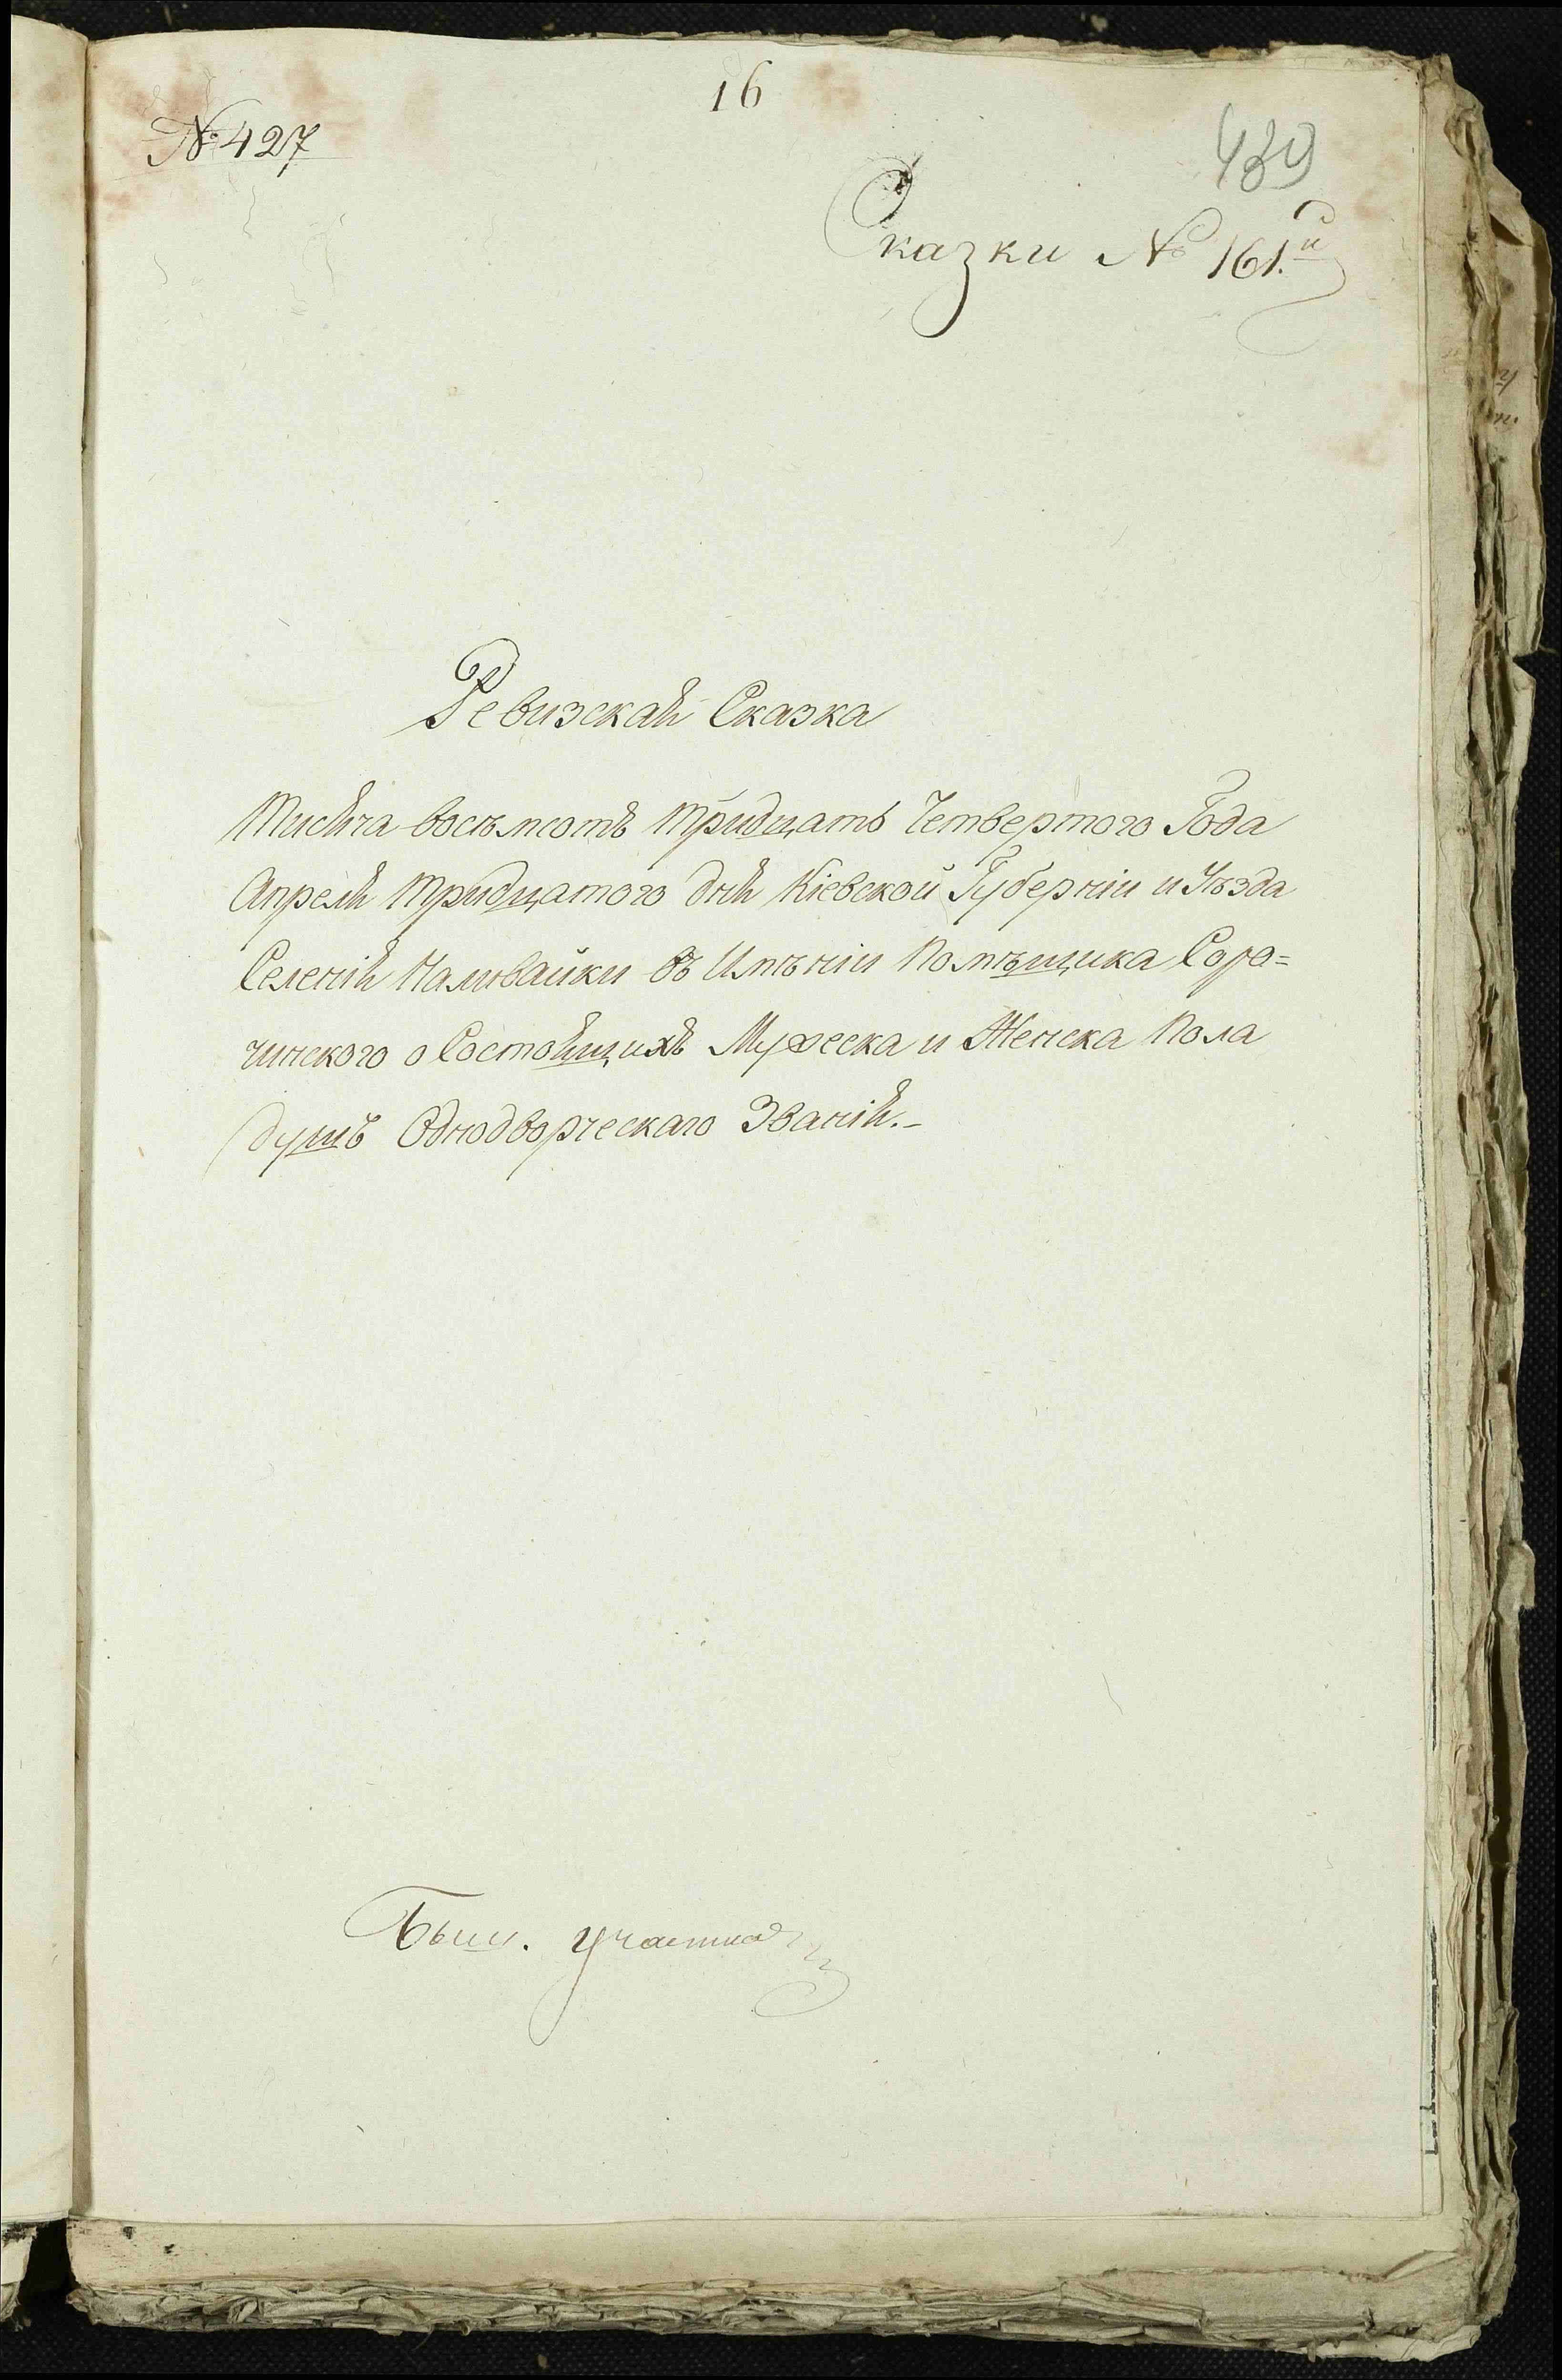 16
№ 427
439
Сказки № 161.й
Ревизская Сказка
Тисяча восѣмсотъ Тридцать Четвертого Года
Апреля тридцатого дня Кіевской Губерніи и Уѣзда
Селенія Наливайки въ Имѣніи Помѣщика Соро=
чинского о Состоящихъ Мужеска и Женска Пола
душъ Однодворческаго Званія.-
участка